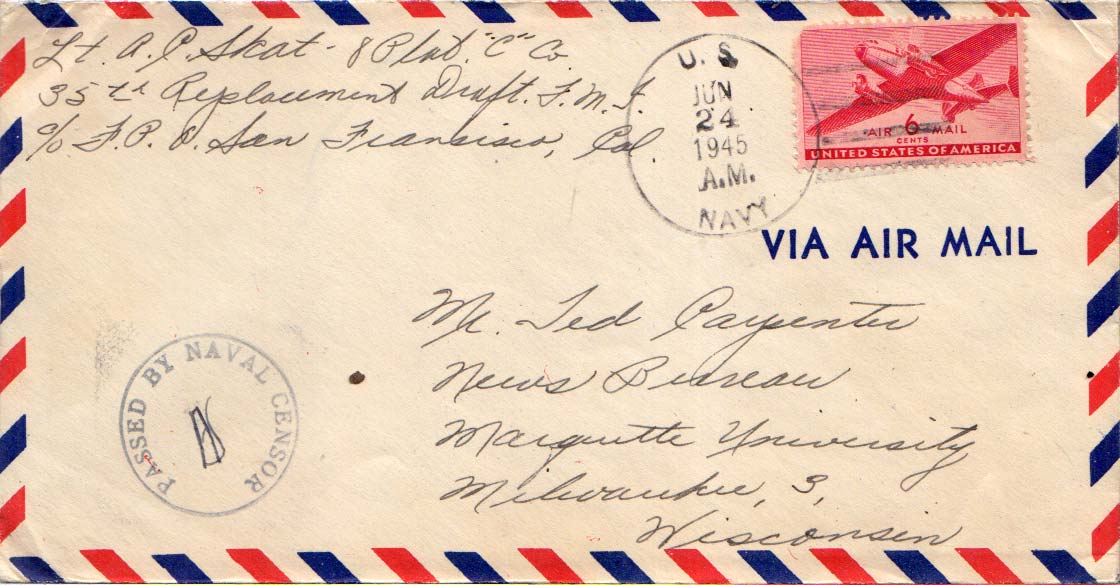 Lt. A. C. Skat - 8 Plat. "C" Co
35th Replacement Draft. F.M.F.
c/o F.P.O. San Fransisco, Cal.
U.S.
JUN
24
1945
A.M.
NAVY
AIR 6 MAIL
CENTS
UNITED STATES OF AMERICA
VIA AIR MAIL
Mr. Ted Carpenter
News Bureau
Marquette University
Milwaukee, 3,
Wisconsin
PASSED BY NAVAL CENSOR